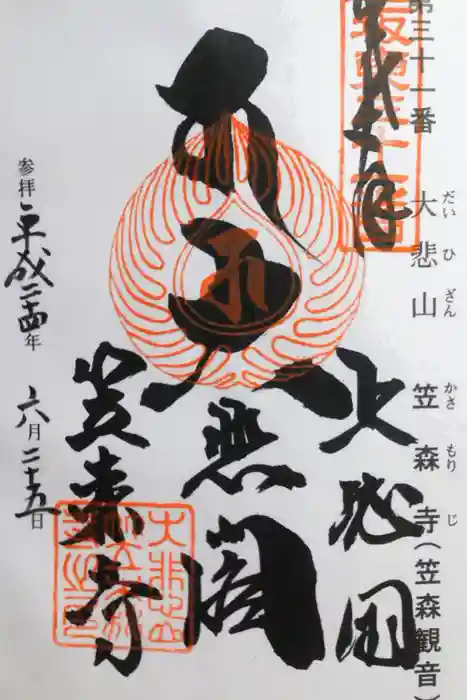 第三十一番
大悲山 笠森寺(笠森観音)
だい ひ ざん かさ もり じ
坂東三十一番
上総国
大悲閣
笠森寺
大悲山
参拝 平成二四年 六月二十五日